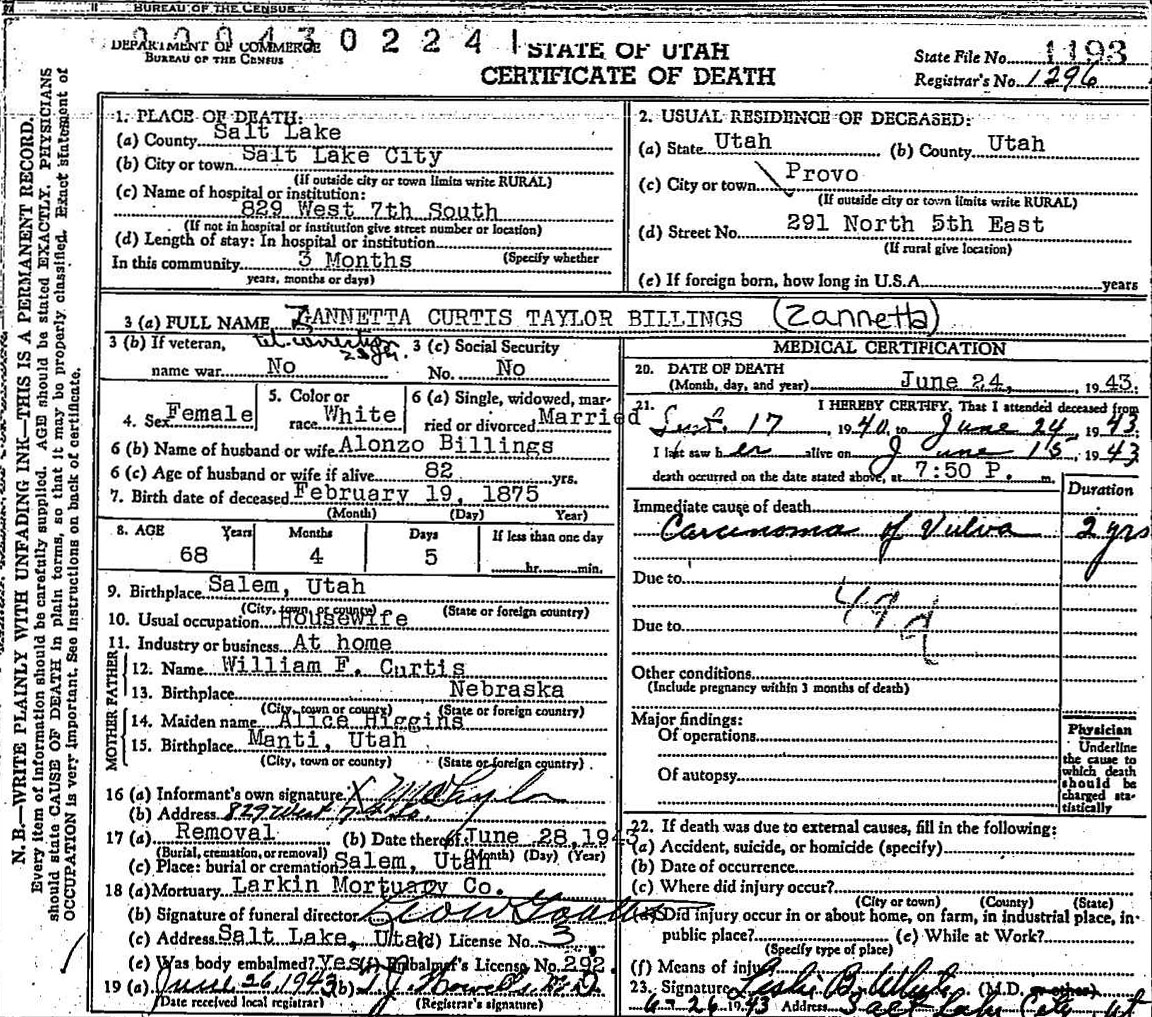 BUREAU OF THE CENSUS
DEPARTMENT OF COMMERCE
BUREAU OF THE CENSUS
0 0 0 4 3 0 2 2 4 1
STATE OF UTAH
CERTIFICATE OF DEATH
State File No. 1193
Registrar's No. 1296
N. B.—WRITE PLAINLY WITH UNFADING INK—THIS IS A PERMANENT RECORD.
Every item of information should be carefully supplied. AGE should be stated EXACTLY. PHYSICIANS
should state CAUSE OF DEATH in plain terms, so that it may be properly classified. Exact statement of
OCCUPATION is very important. See instructions on back of certificate.
1. PLACE OF DEATH:
(a) County Salt Lake
(b) City or town Salt Lake City
(If outside city or town limits write RURAL)
(c) Name of hospital or institution:
829 West 7th South
(If not in hospital or institution give street number or location)
(d) Length of stay: In hospital or institution
In this community 3 Months (Specify whether
years, months or days)
2. USUAL RESIDENCE OF DECEASED:
(a) State Utah (b) County Utah
(c) City or town Provo
(If outside city or town limits write RURAL)
(d) Street No. 291 North 5th East
(If rural give location)
(e) If foreign born, how long in U.S.A. years
3 (a) FULL NAME ZANNETTA CURTIS TAYLOR BILLINGS (Zannetta)
3 (b) If veteran, 3 (c) Social Security
name war No No. No
4. Sex Female 5. Color or race White 6 (a) Single, widowed, married or divorced Married
6 (b) Name of husband or wife Alonzo Billings
6 (c) Age of husband or wife if alive 82 yrs.
7. Birth date of deceased February 19, 1875
(Month) (Day) Year)
8. AGE Years Months Days If less than one day
68 4 5 hr. min.
9. Birthplace Salem, Utah
(City, town, or county) (State or foreign country)
10. Usual occupation Housewife
11. Industry or business At home
FATHER
12. Name William F. Curtis
13. Birthplace Nebraska
(City, town or county) (State or foreign country)
MOTHER
14. Maiden name Alice Higgins
15. Birthplace Manti, Utah
(City, town or county) (State or foreign country)
16 (a) Informant's own signature X
(b) Address 829 West 7 So.
17 (a) Removal (b) Date thereof June 28, 1943
(Burial, cremation, or removal) (Month) (Day) (Year)
(c) Place: burial or cremation Salem, Utah
18 (a) Mortuary Larkin Mortuary Co.
(b) Signature of funeral director
(c) Address Salt Lake, Utah (d) License No. 3
(e) Was body embalmed? Yes (f) Embalmer's License No. 292
19 (a) June 26, 1943 (b)
(Date received local registrar) (Registrar's signature)
MEDICAL CERTIFICATION
20. DATE OF DEATH
(Month, day, and year) June 24, 1943.
21. I HEREBY CERTIFY, That I attended deceased from
Sept. 17 1940, to June 24 1943
I last saw her alive on June 15, 1943
death occurred on the date stated above, at 7:50 P. m.
Duration
Immediate cause of death
Carcinoma of Vulva 2 yrs
Due to
Due to
Other conditions
(Include pregnancy within 3 months of death)
Major findings:
Of operations
Of autopsy
Physician
Underline
the cause to
which death
should be
charged sta-
tistically
22. If death was due to external causes, fill in the following:
(a) Accident, suicide, or homicide (specify)
(b) Date of occurrence
(c) Where did injury occur?
(City or town) (County) (State)
(d) Did injury occur in or about home, on farm, in industrial place, in
public place? (e) While at Work?
(Specify type of place)
(f) Means of injury
23. Signature Leslie B. White (M.D. or other)
6-26 1943 Address Salt Lake City, Ut